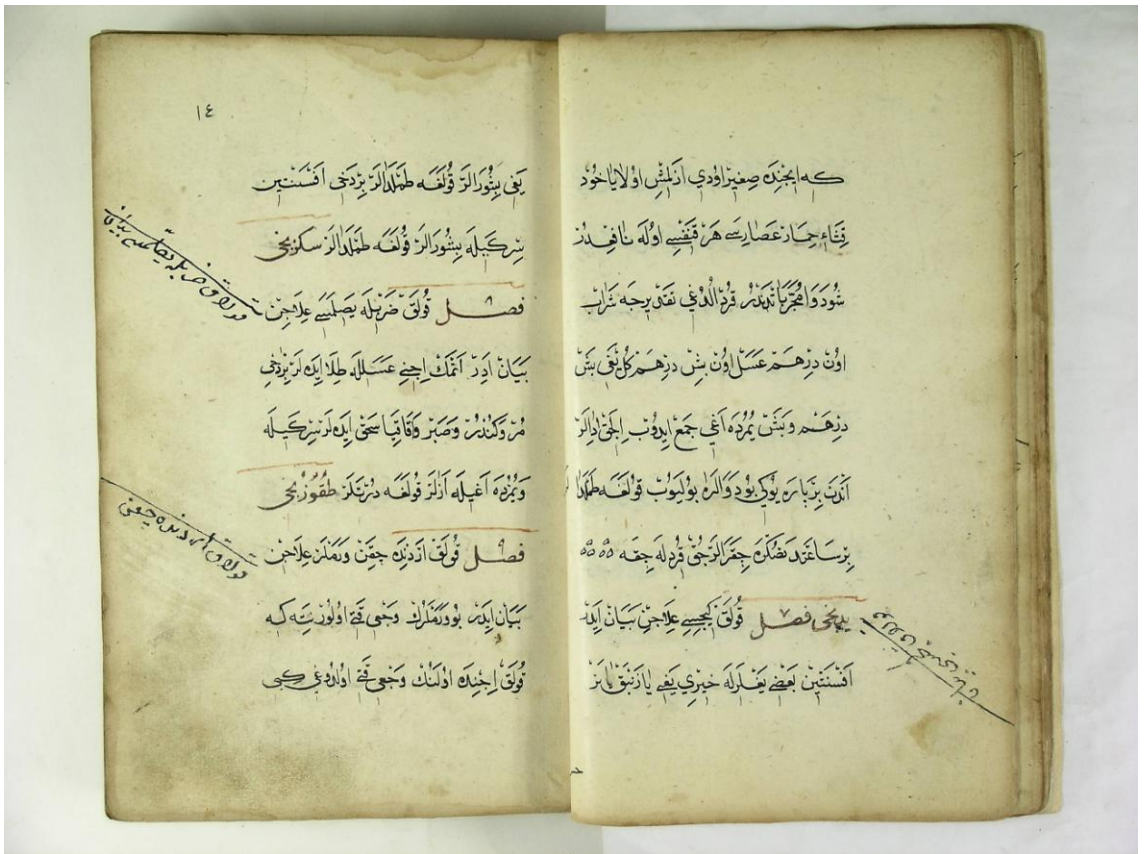 كه ايچنده صغير اودي ازلمش اولا ياخود
قثاء حمار عصارسه هر قنغسے اوله نافعدر
شو دوا مجرباتدندر قرد الدغي نفتى برجه شراب
اون درهم عسل اون بش درهم كل يغى بش
درهم و بش يمرده اغي جمع ايدوب الجق ادالر
اندن بر پاره يوكى بو دوالره بوليوب قولغه طملدا
بر ساعتدنصكره چقرالر جمله قردله چقه
يدنجى فصل ٧ قولق كيجسے علاجن بيان ايدر
افسنتين بعضے يغلرله خيري يغے يا زنبق يا بز
١٤
يغى بشورالر قولغه طملدالر بردخى افسنتين
سركيله بشورالر قولغه طملدالر سكزنجى
فصل ٨ قولق ضربله يصلمسے علاجن
بيان ادر اتمك اچنے عسلله طلا ايده لر بردخى
مر و كندر و صبر و اقاقيا سحق ايده لر سركيله
و يمرده اغيله ازلر قولغه درتلر طقوزنجى
فصل ٩ قولق اردنده چقن ورملر علاجن
بيان ايدر بو ورملرك وجعى قتے اولور شه كه
قولق اچنده اولنك وجعى قتے اولدوغي كبى
قولاق ضربله يصلمسى
قولاق اردنده چقن